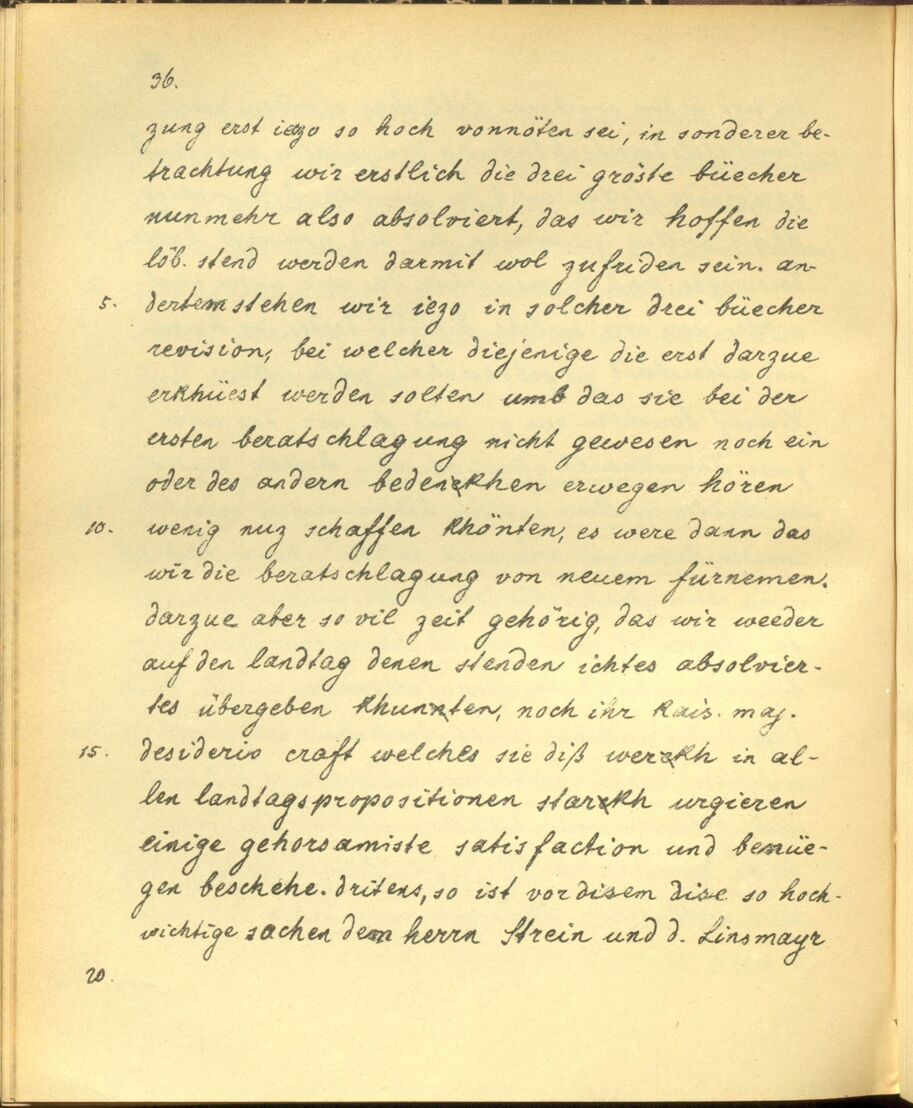 36.
zung erst iezo so hoch vonnöten sei, in sonderer be-
trachtung wir erstlich die drei gröste büecher
nunmehr also absolviert, das wir hoffen die
löb. stend werden darmit wol zufriden sein. an-
5. dertem stehen wir iezo in solcher drei büecher
revision, bei welcher diejenige die erst darzue
erkhüest werden solten umb das sie bei der
ersten beratschlagung nicht gewesen noch ein
oder des andern bedenckhen erwegen hören
10. wenig nuz schaffen khönten, es were dann das
wir die beratschlagung von neuem fürnemen.
darzue aber so vil zeit gehörig, das wir weeder
auf den landtag denen stenden ichtes absolvier-
tes übergeben khunnten, noch ihr kais. maj.
15. desiderio craft welches sie diß werckh in al-
len landtagspropositionen starckh urgieren
einige gehorsamiste satisfaction und benüe-
gen beschehe. dritens, so ist vor disem dise so hoch-
wichtige sachen dem herrn Strein und d. Linsmayr
20.